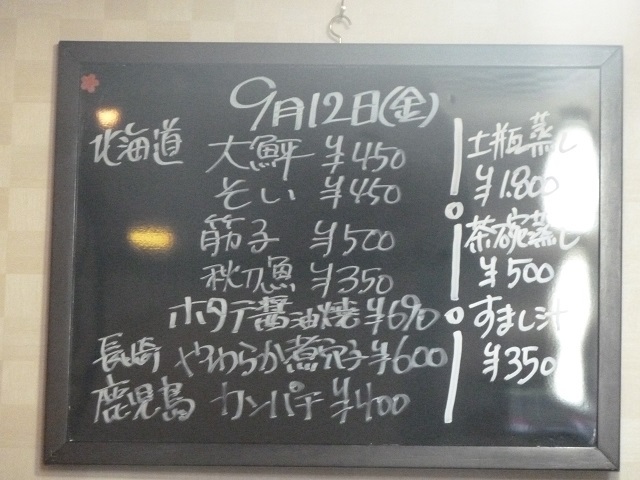 9月12日(金)
北海道 大鮃 ¥450
そい ¥450
筋子 ¥500
秋刀魚 ¥350
ホタテ醤油焼 ¥690
長崎 やわらか煮穴子 ¥600
鹿児島 カンパチ ¥400
土瓶蒸し
¥1.800
茶碗蒸し
¥500
すまし汁
¥350